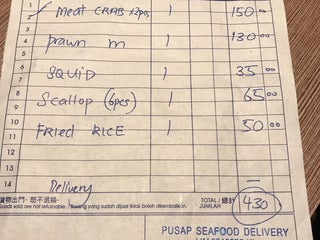 1
2 Meat CRAB x2pcs 1 150 00
3
4 prawn m 1 130 00
5
6
7 SQUID 1 35 00
8
9 Scallop (6pcs) 1 65 00
10
11 FRIED RICE 1 50 00
12
13
14 Delivery —
貨物出門，恕不退換。 TOTAL / 總計 JUMLAH 430
Goods sold are not returnable. / Barang yang sudah dijual tidak boleh dikembalikan.
PUSAP SEAFOOD DELIVERY